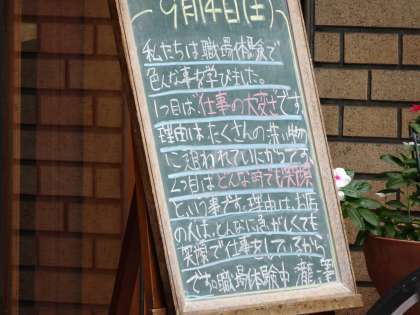 9月14日(土)
私たちは職場体験で
色んな事を学びました。
1つ目は、仕事の大変さです
理由はたくさんの洗い物
に追われていたからです
2つ目はどんな時でも笑顔
という事です。理由は、お店
の人は、どんなに急がしくても
笑顔で仕事をしているから
です。職場体験中 瀧澤